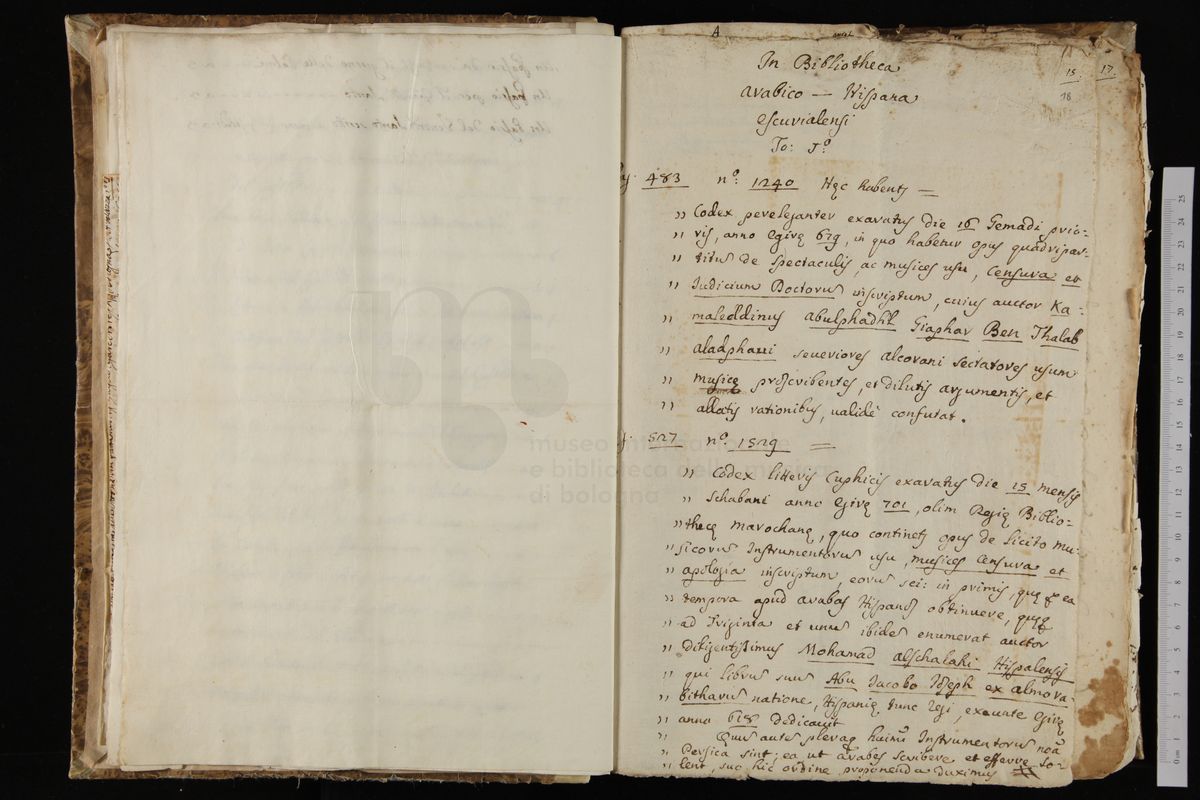 A
15
17.
18
In Bibliotheca
arabico — Hispana
Escurialensi
To: I.º
483 nº: 1240 Hęc habent =
„ Codex perelegantér exaratus die 16 Gemadi prio:
„ ris, anno Egirę 679, in quo habetur opus quadripar-
„ titus de Spectaculis, ac musices usu, Censura et
„ Judicium Doctorum inscriptum, cuius auctor Ka:
„ maleddinus abulphadhl Giaphar Ben Thalab
„ aladphauri severiores alcorani sectatores usum
„ musicę proscribentes, et dilutis argumentis, et
„ allatis rationibus, validè confutat.
f. 527 nº. 1529 =
„ Codex litteris Cuphicis exaratus die 15 mensis
„ Schabani anno Egirę 701, olim Regię Biblio:
„ thecę marochanę, quo continetur opus de licito mu:
„ sicorum Instrumentorum usu, musices Censura et
„ apologia inscriptum, eorum sci: in primis, quę ea
„ tempora apud arabas Hispanos obtinuere, quęq
„ ad Triginta et unum ibidem enumerat auctor
„ Diligentissimus Mohamad alschalahi Hispalensis
„ qui librum suum Abu Jacobo Joseph ex almora:
„ bitharum natione, Hispanię tunc Regi, exeunte Egirę
„ anno 618 dedicavit
„ Quum autem pleraq huius Instrumentorum noã
„ Persica sint; ea ut arabes scribere et efferre so:
„ lent, suo hic ordine proponenda duximus
museo internazionale
e biblioteca della musica
di bologna
0 cm 1 2 3 4 5 6 7 8 9 10 11 12 13 14 15 16 17 18 19 20 21 22 23 24 25